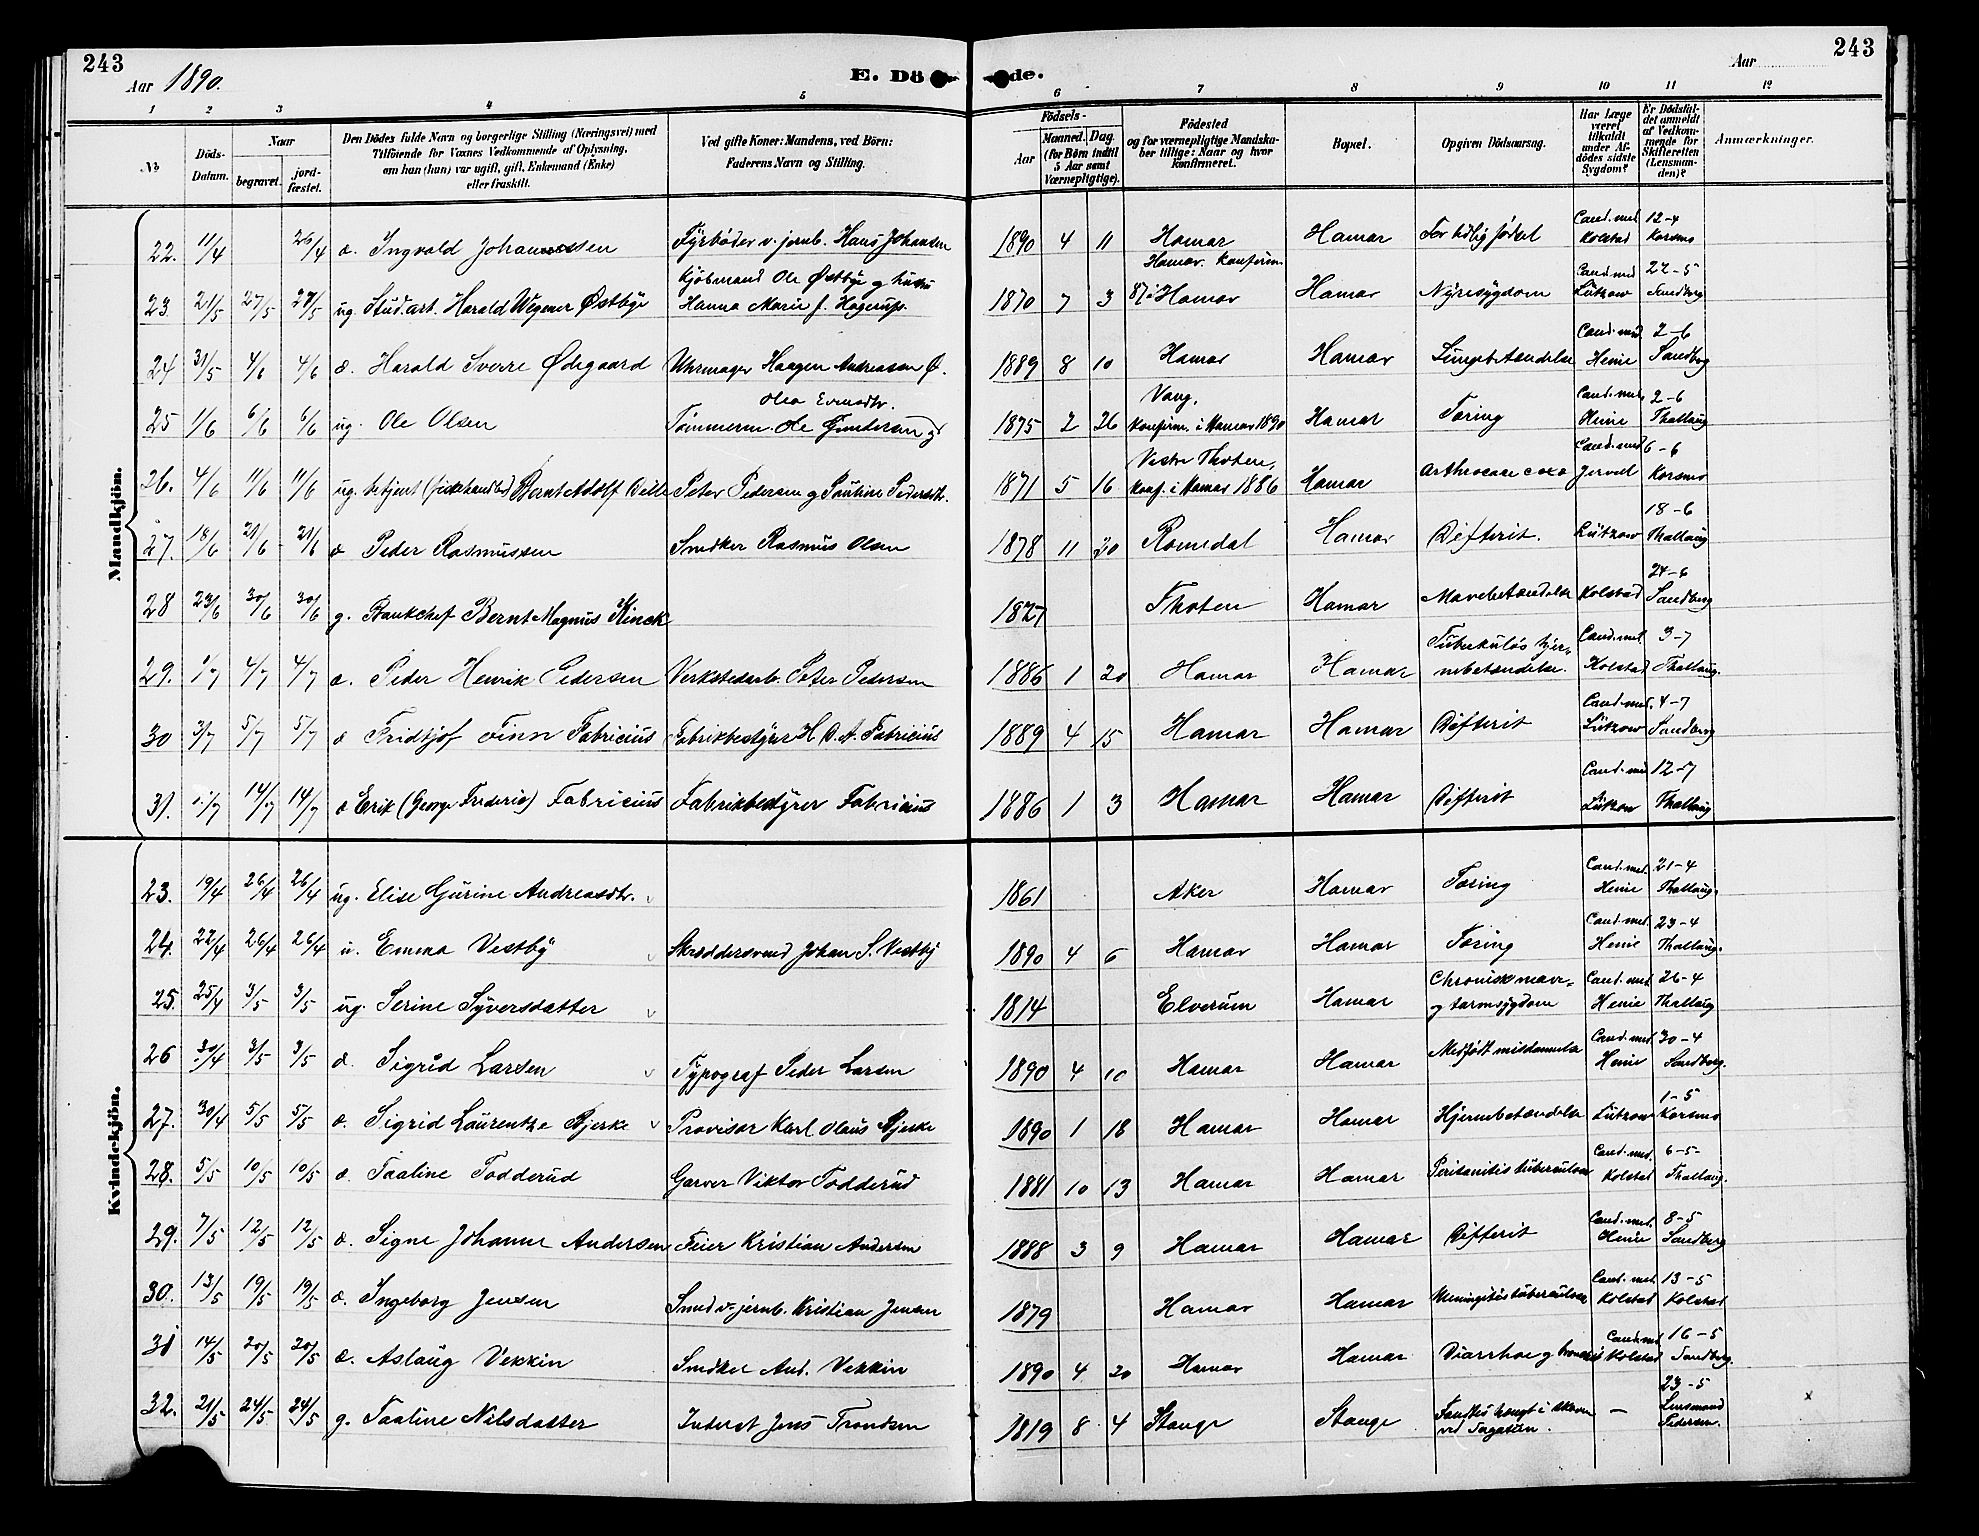 243
Aar 1890.
E. Dö
de.
Aar
243
1 2 3 4 5 6 7 8 9 10 11 12
No
Döds-Datum.
Naar
begravet.
jord-fæstet.
Den Dödes fulde Navn og borgerlige Stilling (Næringsvei) med
Tilföiende for Voxnes Vedkommende af Oplysning,
om han (hun) var ugift, gift, Enkemand (Enke)
eller fraskilt.
Ved gifte Koner: Mandens, ved Börn:
Faderens Navn og Stilling.
Födsels-
Aar
Maaned. Dag.
(for Börn indtil
5 Aar samt
Værnepligtige).
Födested
og for værnepligtige Mandska-
ber tillige: Naar og hvor
konfirmeret.
Bopæl.
Opgiven Dödsaarsag.
Har Læge
været
tilkaldt
under Af-
dödes sidste
Sygdom?
Er Dödsfal-
det anmeldt
af Vedkom-
mende for
Skifteretten
(Lensman-
den)?
Anmærkninger.
Mandkjön.
22. 11/4 26/4 æ. Ingvald Johannessen Fyrbøder v. jernb. Hans Johansen 1890 4 11 Hamar Hamar For tidlig fødsel Cand. med. Kolstad 12-4 Korsmo
23. 21/5 27/5 27/5 ug. Stud. art. Harald Wegener Østbye Kjøbmand Ole Østbye og hustru Hanna Marie f. Hagerup. 1870 7 3 Hamar. Konfirm. 87 i Hamar Hamar Nyresygdom Cand. med Lützow 22-5 Sandberg
24 31/5 4/6 4/6 æ. Harald Sverre Ødegaard Uhrmager Haagen Andreassen Ø. 1889 8 10 Hamar Hamar Lungebetændelse Cand. med. Henie 2-6 Sandberg
25 1/6 6/6 6/6 ug. Ole Olsen Tømmerm. Ole Gundersen og Olea Evensdtr. 1875 2 26 Vang, konfirm. i Hamar 1890 Hamar Tæring Cand. med. Henie 2-6 Thallaug
26. 4/6 11/6 11/6 ug. betjent Bernt Adolf Peter Pedersen og Pauline Pedersdtr. 1871 5 16 Vestre Thoten, konf. i Hamar 1886 Hamar Arthrocace coxa Cand. med Jervell 6-6 Korsmo
27. 18/6 21/6 21/6 æ Peder Rasmussen Snedker Rasmus Olsen 1878 11 20 Romedal Hamar Difterit. Lützow 18-6 Thallaug
28 23/6 30/6 30/6 g. Bankchef Bernt Magnus Kinck 1827 Thoten Hamar Mavebetændelse Kolstad 24-6 Sandberg
29. 1/7 4/7 4/7 æ. Peder Henrik Pedersen Verkstedarb. Peter Pedersen 1886 1 20 Hamar Hamar Tuberkuløs hjernebetændelse. Cand. med. Kolstad 3-7 Thallaug.
30 3/7 5/7 5/7 æ Fridtjof Finn Fabricius Fabrikbestyrer H. D. A. Fabricius 1889 4 15 Hamar Hamar Difterit Cand. med. Lützow 4-7 Sandberg
31. 14/7 14/7 æ Erik (George Frederic) Fabricius Fabrikbestyrer Fabricius 1886 1 3 Hamar Hamar Difterit Cand. med Lützow 12-7 Thallaug
Kvindekjön.
23. 19/4 26/4 26/4 ug. Elise Gurine Andreasdtr. 1861 Aker Hamar Tæring Cand. med. Henie 21-4 Thallaug.
24. 22/4 26/4 26/4 u. Emma Vestby Skræddersvend Johan S. Vestby 1890 4 6 Hamar Hamar Tæring Cand. med. Henie 23-4 Thallaug.
25. 25/4 3/5 3/5 ug. Serine Syversdatter 1814 Elverum Hamar Chronisk mave- og tarmsygdom Cand. med. Henie 26-4 Thallaug
26 30/4 3/5 3/5 æ. Sigrid Larsen Typograf Peder Larsen 1890 4 10 Hamar Hamar Medfødt misdannelse Cand. med. Henie 30-4 Sandberg.
27. 30/4 5/5 5/5 æ. Sigrid Laurentze Bjerke Provisor Karl Olaus Bjerke 1890 1 18 Hamar Hamar Hjernebetændelse Lützow 1-5 Korsmo
28. 5/5 10/5 10/5 æ. Taaline Todderud Garver Viktor Todderud 1881 10 13 Hamar Hamar Peritonitis tuberculosa Cand. med. Kolstad 6-5 Thallaug.
29. 7/5 12/5 12/5 æ. Signe Johanne Andersen Feier Kristian Andersen 1888 3 9 Hamar Hamar Difterit Cand. med. Henie 8-5 Sandberg
30. 13/5 19/5 19/5 æ. Ingeborg Jensen Smed v. jernb. Kristian Jensen 1879 Hamar Hamar Meningitis tuberculosa Cand. med. Kolstad 13-5 Kolstad
31 14/5 20/5 20/5 æ. Aslaug Vekkin Snedker And. Vekkin 1890 4 20 Hamar Hamar Diarrhoe og Cand. med. Kolstad 16-5 Sandberg.
32. 21/5 24/5 24/5 g. Taaline Nilsdatter Inderst Jens Trondsen 1819 8 4 Stange Stange Fandtes hængt i skoven ved — 23-5 Lensmand Pedersen. x